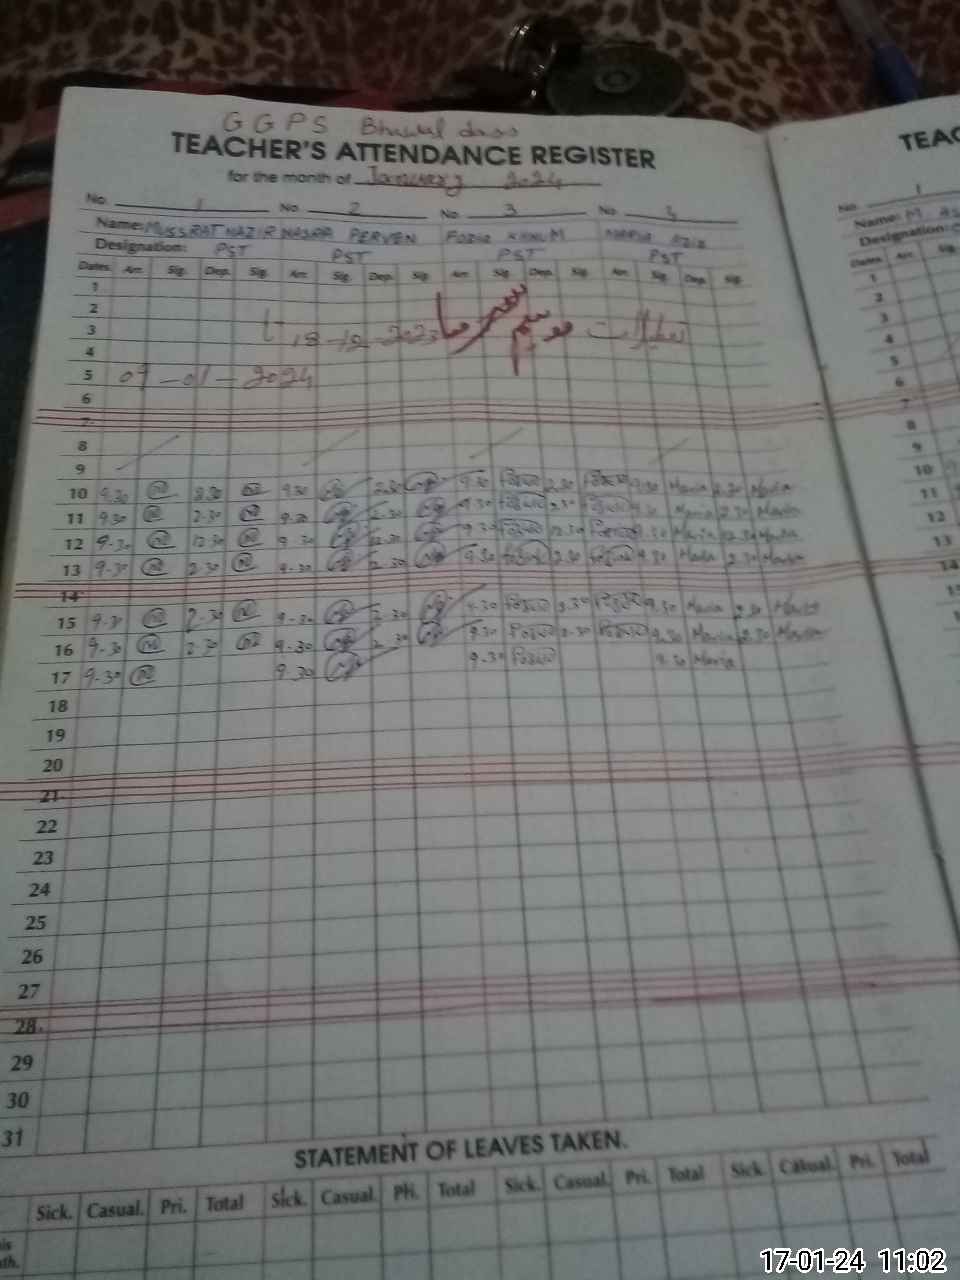 GGPS Bhawal dass
TEACHER'S ATTENDANCE REGISTER
TEAC
for the month of January 2024
No. 1 No. 2 No. 3 No. 4
No. 1
Name: MUSSRAT NAZIR NASRA PERVEN FOZIA KHNUM MARIA AZIZ
Name: M.
Designation: PST PST PST PST
Designation:
Dates. Arr. Sig. Dep. Sig. Arr. Sig. Dep. Sig. Arr. Sig. Dep. Sig. Arr. Sig. Dep. Sig.
Dates. Arr. Sig.
1
2
3 18-12-2023 موسم سرما
4
5 09-01-2024
6
7
8
9
10 9.30 2.30 9.30 2.30 9.30 Fozia 2.30 Fozia 9.30 Maria 2.30 Maria
11 9.30 2.30 9.30 2.30 9.30 Fozia 2.30 Fozia 9.30 Maria 2.30 Maria
12 9.30 12.30 9.30 12.30 9.30 Fozia 12.30 Fozia 9.30 Maria 12.30 Maria
13 9.30 2.30 9.30 2.30 9.30 Fozia 2.30 Fozia 9.30 Maria 2.30 Maria
14
15 9.30 2.30 9.30 2.30 9.30 Fozia 2.30 Fozia 9.30 Maria 2.30 Maria
16 9.30 2.30 9.30 2.30 9.30 Fozia 2.30 Fozia 9.30 Maria 2.30 Maria
17 9.30 9.30 9.30 Fozia 9.30 Maria
18
19
20
21
22
23
24
25
26
27
28
29
30
31
STATEMENT OF LEAVES TAKEN.
Sick. Casual. Pri. Total Sick. Casual. Pri. Total Sick. Casual. Pri. Total Sick. Casual. Pri. Total
17-01-24 11:02